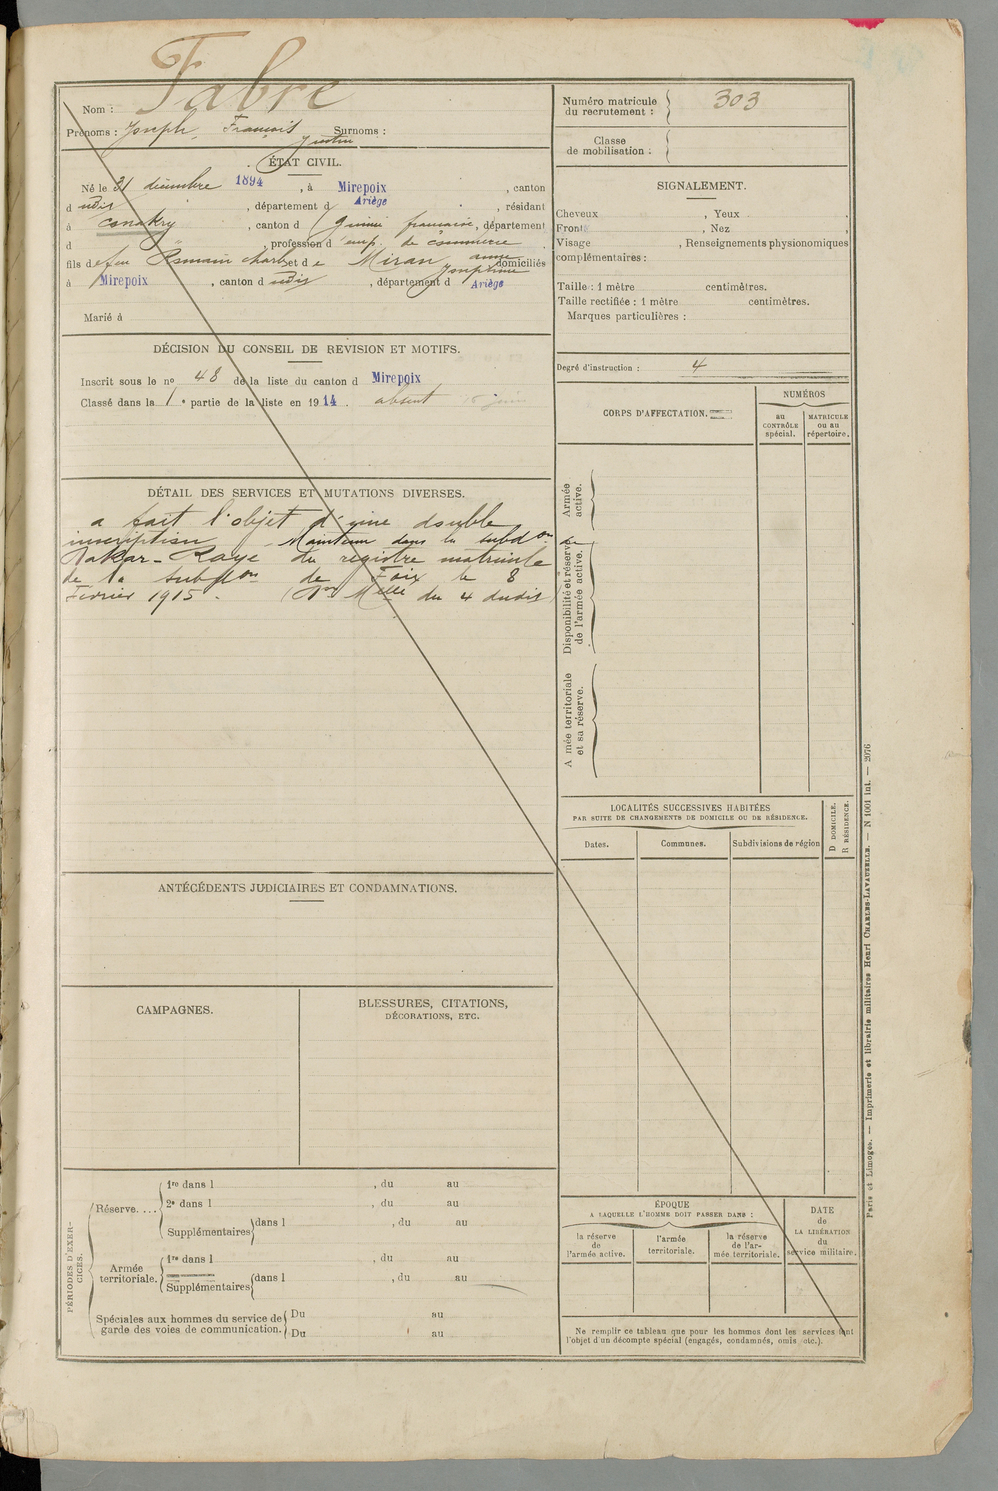 Nom : Fabre
Prénoms : Joseph François Justin Surnoms :
ÉTAT CIVIL.
Né le 31 décembre 1894, à Mirepoix, canton
d udis, département d Ariège, résidant
à Conakry, canton d Guinée française, département
d , profession d emp. de commerce
fils de feu Romain Charles et de Miran Anne Joséphine domiciliés
à Mirepoix, canton d udis, département d Ariège
Marié à
DÉCISION DU CONSEIL DE REVISION ET MOTIFS.
Inscrit sous le no 48 de la liste du canton d Mirepoix
Classé dans la 1e partie de la liste en 1914. absent 15 juin
DÉTAIL DES SERVICES ET MUTATIONS DIVERSES.
a fait l'objet d'une double
inscription Maintenu dans la subdon de
Dakar - Rayé du registre matricule
de la subdon de Foix le 8
Février 1915. (Melle du 4 dudit)
ANTÉCÉDENTS JUDICIAIRES ET CONDAMNATIONS.
CAMPAGNES.
BLESSURES, CITATIONS,
DÉCORATIONS, ETC.
PÉRIODES D'EXERCICES.
Réserve....
1re dans l , du au
2e dans l , du au
Supplémentaires dans l , du au
Armée territoriale.
1re dans l , du au
Supplémentaires dans l , du au
Spéciales aux hommes du service de
garde des voies de communication.
Du au
Du au
Numéro matricule
du recrutement : 303
Classe
de mobilisation :
SIGNALEMENT.
Cheveux , Yeux ,
Front , Nez ,
Visage , Renseignements physionomiques
complémentaires :
Taille : 1 mètre centimètres.
Taille rectifiée : 1 mètre centimètres.
Marques particulières :
Degré d'instruction : 4
CORPS D'AFFECTATION.
NUMÉROS
au
CONTRÔLE
spécial.
MATRICULE
ou au
répertoire.
Armée
active.
Disponibilité et réserve
de l'armée active.
A mée territoriale
et sa réserve.
LOCALITÉS SUCCESSIVES HABITÉES
PAR SUITE DE CHANGEMENTS DE DOMICILE OU DE RÉSIDENCE.
Dates.
Communes.
Subdivisions de région
D DOMICILE.
R RÉSIDENCE.
ÉPOQUE
A LAQUELLE L'HOMME DOIT PASSER DANS :
la réserve
de
l'armée active.
l'armée
territoriale.
la réserve
de l'ar-
mée territoriale.
DATE
de
LA LIBÉRATION
du
service militaire.
Ne remplir ce tableau que pour les hommes dont les services font
l'objet d'un décompte spécial (engagés, condamnés, omis etc.).
Paris et Limoges. — Imprimerie et librairie militaires Henri CHARLES-LAVAUZELLE. — N 1001 int. — 2076